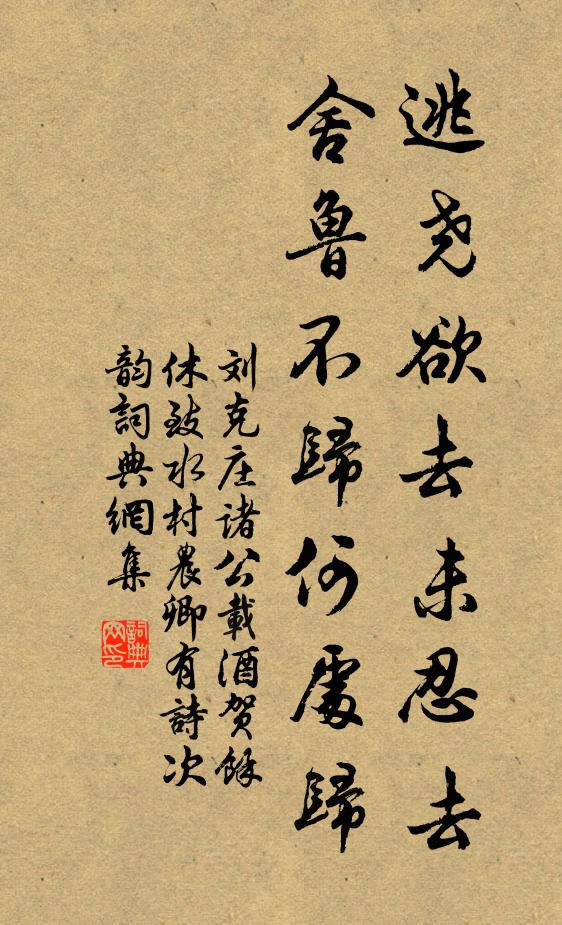 逃尧欲去未忍去
舍鲁不歸何處歸
刘克庄诸公載酒贺餘
休致水村農卿有詩次
韵詞典網集
詞典
网印